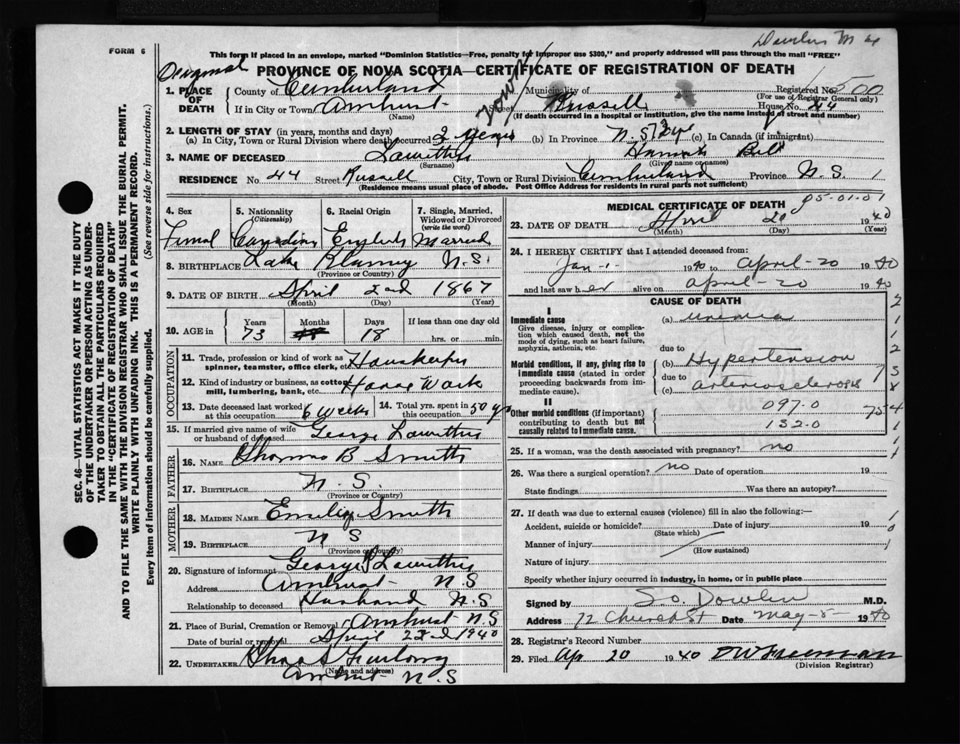 FORM 6
This form if placed in an envelope, marked "Dominion Statistics—Free, penalty for improper use $300," and properly addressed will pass through the mail "FREE"
PROVINCE OF NOVA SCOTIA—CERTIFICATE OF REGISTRATION OF DEATH
1. PLACE OF DEATH County of Cumberland Municipality of Registered No. 500
(For use of Registrar General only)
If in City or Town Amherst Street Russell House No. 44
(Name) (If death occurred in a hospital or institution, give the name instead of street and number)
2. LENGTH OF STAY (in years, months and days)
(a) In City, Town or Rural Division where death occurred 2 years (b) In Province N.S. (c) In Canada (if immigrant)
3. NAME OF DECEASED Lowther Hannah
(Surname) (Given name or names)
RESIDENCE No. 44 Street Russell City, Town or Rural Division Cumberland Province N.S.
(Residence means usual place of abode. Post Office Address for residents in rural parts not sufficient)
4. Sex 5. Nationality (Citizenship) 6. Racial Origin 7. Single, Married, Widowed or Divorced (write the word)
Femal Canadian English Married
8. BIRTHPLACE N.S.
(Province or Country)
9. DATE OF BIRTH April 2nd 1867
(Month) (Day) (Year)
10. AGE in Years Months Days If less than one day old
73 18 hrs. or min.
OCCUPATION
11. Trade, profession or kind of work as spinner, teamster, office clerk, etc. Housekeeper
12. Kind of industry or business, as cotton mill, lumbering, bank, etc. House Work
13. Date deceased last worked at this occupation 6 weeks 14. Total yrs. spent in this occupation 50 yrs
15. If married give name of wife or husband of deceased George Lowther
FATHER
16. Name Thomas B Smith
17. BIRTHPLACE N.S.
(Province or Country)
MOTHER
18. MAIDEN NAME Emily Smith
19. BIRTHPLACE N S
(Province or Country)
20. Signature of informant George Lowther
Address Amherst N S
Relationship to deceased Husband N.S
21. Place of Burial, Cremation or Removal Amherst N S
Date of burial or removal April 22nd 1940
22. UNDERTAKER Chas S Furlong
(Name and address)
Amherst N.S
MEDICAL CERTIFICATE OF DEATH
23. DATE OF DEATH April 20 1940
(Month) (Day) (Year)
24. I HEREBY CERTIFY that I attended deceased from:
Jan-1- 1940 to April-20 1940
and last saw her alive on April-20 1940
CAUSE OF DEATH
I
Immediate cause (a) uremia
Give disease, injury or complication which caused death, not the mode of dying, such as heart failure, asphyxia, asthenia, etc.
due to
Morbid conditions, if any, giving rise to immediate cause (stated in order proceeding backwards from immediate cause). (b) Hypertension
due to
(c) arteriosclerosis
II
Other morbid conditions (if important) contributing to death but not causally related to immediate cause.
097.0
132.0
25. If a woman, was the death associated with pregnancy? no
26. Was there a surgical operation? no Date of operation 19
State findings Was there an autopsy?
27. If death was due to external causes (violence) fill in also the following:—
Accident, suicide or homicide? Date of injury 19
(State which)
Manner of injury
(How sustained)
Nature of injury
Specify whether injury occurred in industry, in home, or in public place
Signed by M.D.
Address 72 Church St Date May-5- 1940
28. Registrar's Record Number
29. Filed Ap 20 1940 Freeman
(Division Registrar)
SEC. 46—VITAL STATISTICS ACT MAKES IT THE DUTY OF THE UNDERTAKER OR PERSON ACTING AS UNDERTAKER TO OBTAIN ALL THE PARTICULARS REQUIRED IN THE "CERTIFICATE OF REGISTRATION OF DEATH" AND TO FILE THE SAME WITH THE DIVISION REGISTRAR WHO SHALL ISSUE THE BURIAL PERMIT.
WRITE PLAINLY WITH UNFADING INK. THIS IS A PERMANENT RECORD.
Every item of information should be carefully supplied. (See reverse side for instructions.)